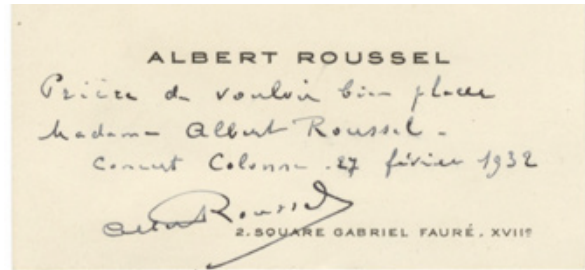 ALBERT ROUSSEL
Prière de vouloir bien placer
Madame Albert Roussel.
Concert Colonne. 27 février 1932
Albert Roussel
2. SQUARE GABRIEL FAURÉ. XVIIᵉ